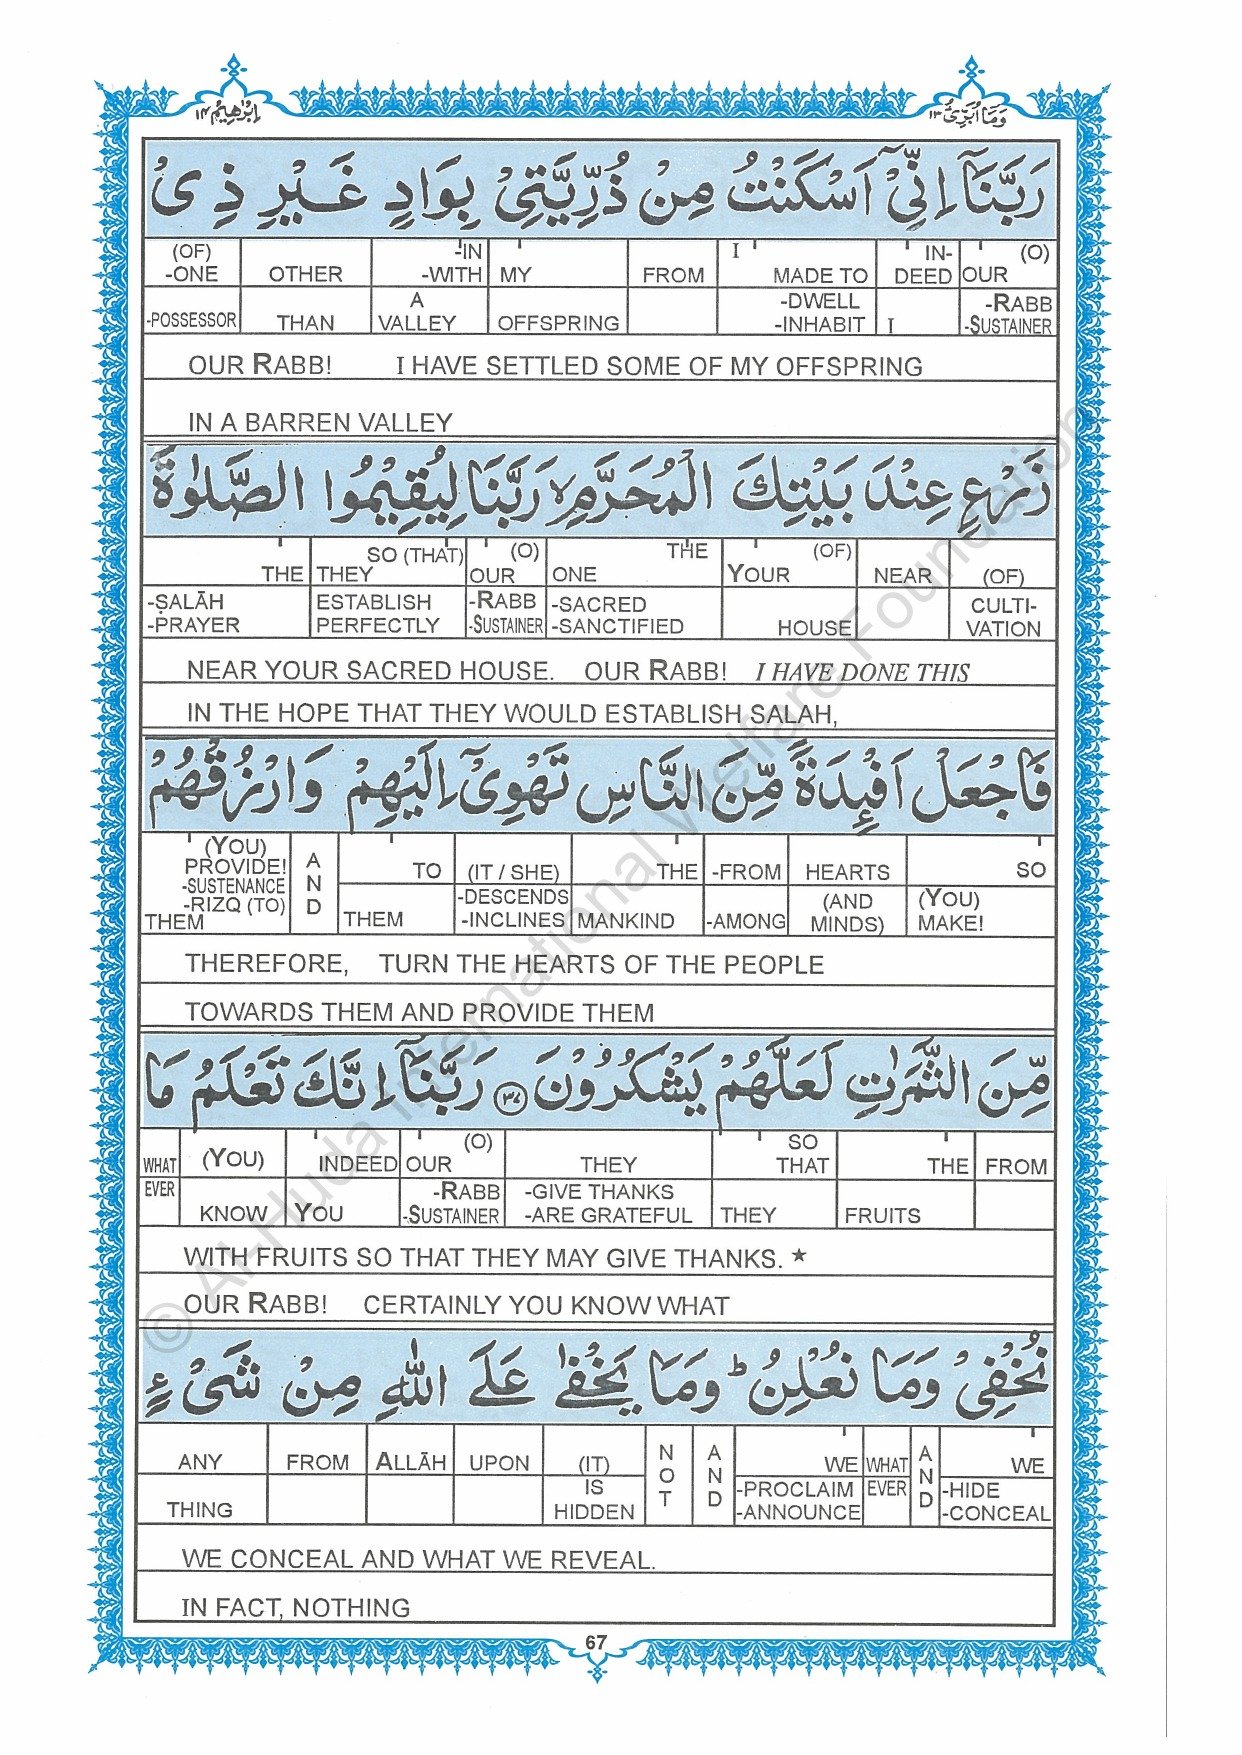 وَمَا أُبَرِّئُ ١٣
اِبْرٰهِيْم ١٤
رَبَّنَآ اِنِّىْٓ اَسْكَنْتُ مِنْ ذُرِّيَّتِىْ بِوَادٍ غَيْرِ ذِىْ
(OF) -ONE OTHER -IN -WITH MY FROM I MADE TO IN- DEED (O) OUR
-POSSESSOR THAN A VALLEY OFFSPRING -DWELL -INHABIT I -RABB -SUSTAINER
OUR RABB! I HAVE SETTLED SOME OF MY OFFSPRING
IN A BARREN VALLEY
زَرْعٍ عِنْدَ بَيْتِكَ الْمُحَرَّمِ ۙ رَبَّنَا لِيُقِيْمُوا الصَّلٰوةَ
THE SO (THAT) THEY (O) OUR THE ONE (OF) YOUR NEAR (OF)
-ṢALĀH -PRAYER ESTABLISH PERFECTLY -RABB -SUSTAINER -SACRED -SANCTIFIED HOUSE CULTI- VATION
NEAR YOUR SACRED HOUSE. OUR RABB! I HAVE DONE THIS
IN THE HOPE THAT THEY WOULD ESTABLISH SALAH,
فَاجْعَلْ اَفْـِٕدَةً مِّنَ النَّاسِ تَهْوِىْٓ اِلَيْهِمْ وَارْزُقْهُمْ
(YOU) PROVIDE! -SUSTENANCE -RIZQ (TO) THEM AND TO (IT / SHE) THE -FROM HEARTS SO
THEM -DESCENDS -INCLINES MANKIND -AMONG (AND MINDS) (YOU) MAKE!
THEREFORE, TURN THE HEARTS OF THE PEOPLE
TOWARDS THEM AND PROVIDE THEM
مِّنَ الثَّمَرٰتِ لَعَلَّهُمْ يَشْكُرُوْنَ ٣٧ رَبَّنَآ اِنَّكَ تَعْلَمُ مَا
WHAT (YOU) INDEED (O) OUR THEY SO THAT THE FROM
EVER KNOW YOU -RABB -SUSTAINER -GIVE THANKS -ARE GRATEFUL THEY FRUITS
WITH FRUITS SO THAT THEY MAY GIVE THANKS. ★
OUR RABB! CERTAINLY YOU KNOW WHAT
نُخْفِىْ وَمَا نُعْلِنُ ؕ وَمَا يَخْفٰى عَلَى اللّٰهِ مِنْ شَىْءٍ
ANY FROM ALLĀH UPON (IT) NOT AND WE WHAT AND WE
THING IS HIDDEN -PROCLAIM -ANNOUNCE EVER -HIDE -CONCEAL
WE CONCEAL AND WHAT WE REVEAL.
IN FACT, NOTHING
67
© Al-Huda International Welfare Foundation